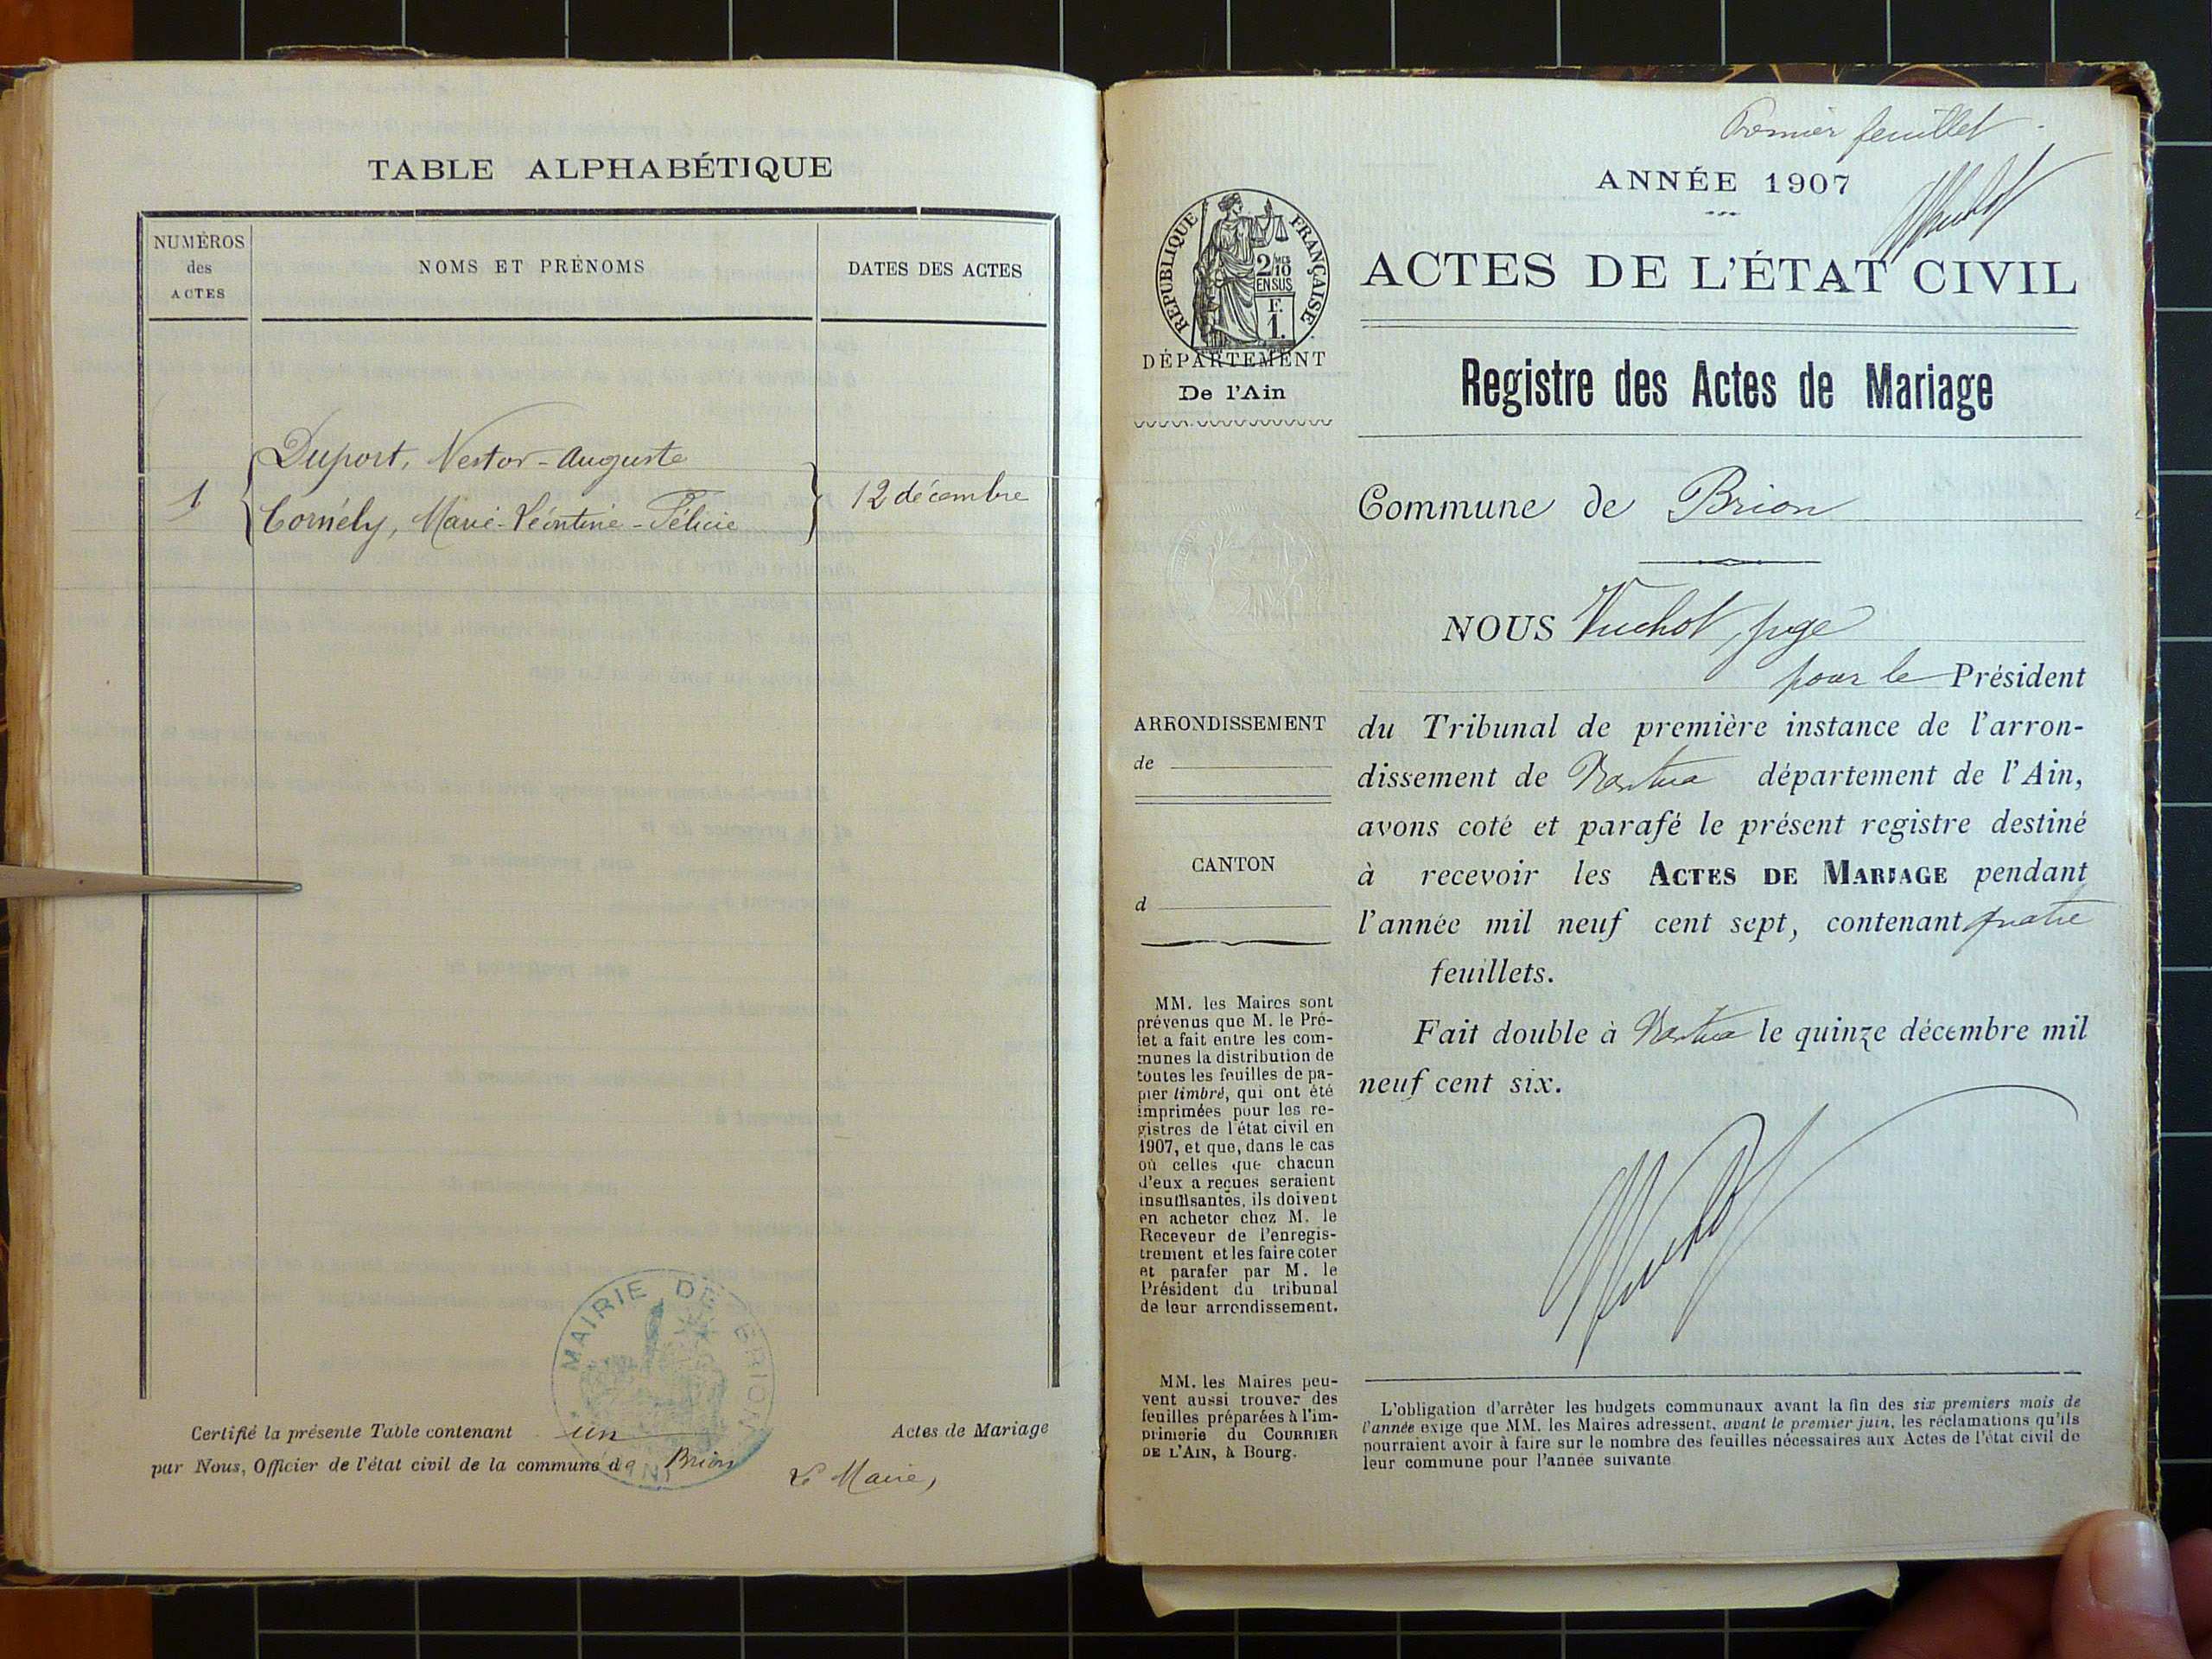 TABLE ALPHABÉTIQUE
NUMÉROS
des
ACTES
NOMS ET PRÉNOMS
DATES DES ACTES
Duport, Nestor-Auguste
1
12 décembre
Cornély, Marie-Léontine-Félicie
MAIRIE DE BRION
AIN
Certifié la présente Table contenant un Actes de Mariage
par Nous, Officier de l'état civil de la commune de Brion
Le Maire,
Premier feuillet
ANNÉE 1907
RÉPUBLIQUE FRANÇAISE
2/10
MES
EN SUS
F.
1.
ACTES DE L'ÉTAT CIVIL
DÉPARTEMENT
De l'Ain
Registre des Actes de Mariage
Commune de Brion
NOUS Vuchot, juge
pour le Président
ARRONDISSEMENT
de
du Tribunal de première instance de l'arron-
dissement de Nantua département de l'Ain,
avons coté et parafé le présent registre destiné
CANTON
d
à recevoir les ACTES DE MARIAGE pendant
l'année mil neuf cent sept, contenant quatre
feuillets.
Fait double à Nantua le quinze décembre mil
neuf cent six.
MM. les Maires sont
prévenus que M. le Pré-
fet a fait entre les com-
munes la distribution de
toutes les feuilles de pa-
pier timbré, qui ont été
imprimées pour les re-
gistres de l'état civil en
1907, et que, dans le cas
où celles que chacun
d'eux a reçues seraient
insuffisantes, ils doivent
en acheter chez M. le
Receveur de l'enregis-
trement et les faire coter
et parafer par M. le
Président du tribunal
de leur arrondissement.
MM. les Maires peu-
vent aussi trouver des
feuilles préparées à l'im-
primerie du COURRIER
DE L'AIN, à Bourg.
L'obligation d'arrêter les budgets communaux avant la fin des six premiers mois de
l'année exige que MM. les Maires adressent, avant le premier juin, les réclamations qu'ils
pourraient avoir à faire sur le nombre des feuilles nécessaires aux Actes de l'état civil de
leur commune pour l'année suivante